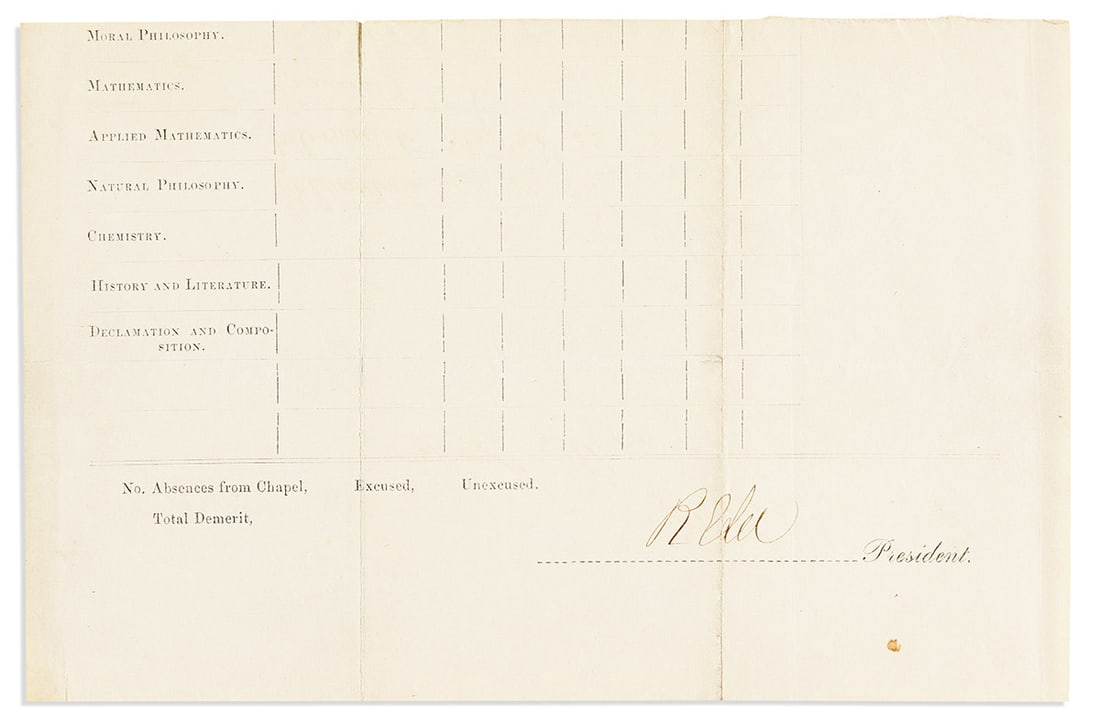 MORAL PHILOSOPHY.
MATHEMATICS.
APPLIED MATHEMATICS.
NATURAL PHILOSOPHY.
CHEMISTRY.
HISTORY AND LITERATURE.
DECLAMATION AND COMPO-
SITION.
No. Absences from Chapel, Excused, Unexcused.
Total Demerit,
R E Lee
President.